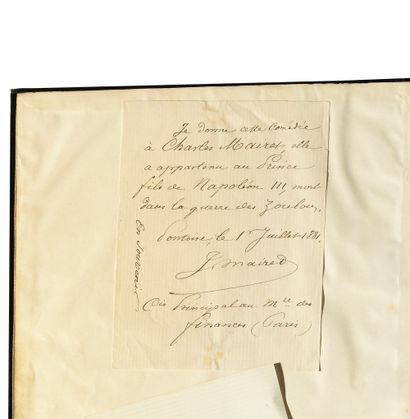 Je donne cette Comédie
à Charles Mairet, elle
a appartenu au Prince
fils de Napoléon III, mort
dans la guerre des Zoulous,
Pontoise le 1er Juillet 1881.
J. Mairet
Cis Principal au Mre des
finances (Paris)
En Souvenir